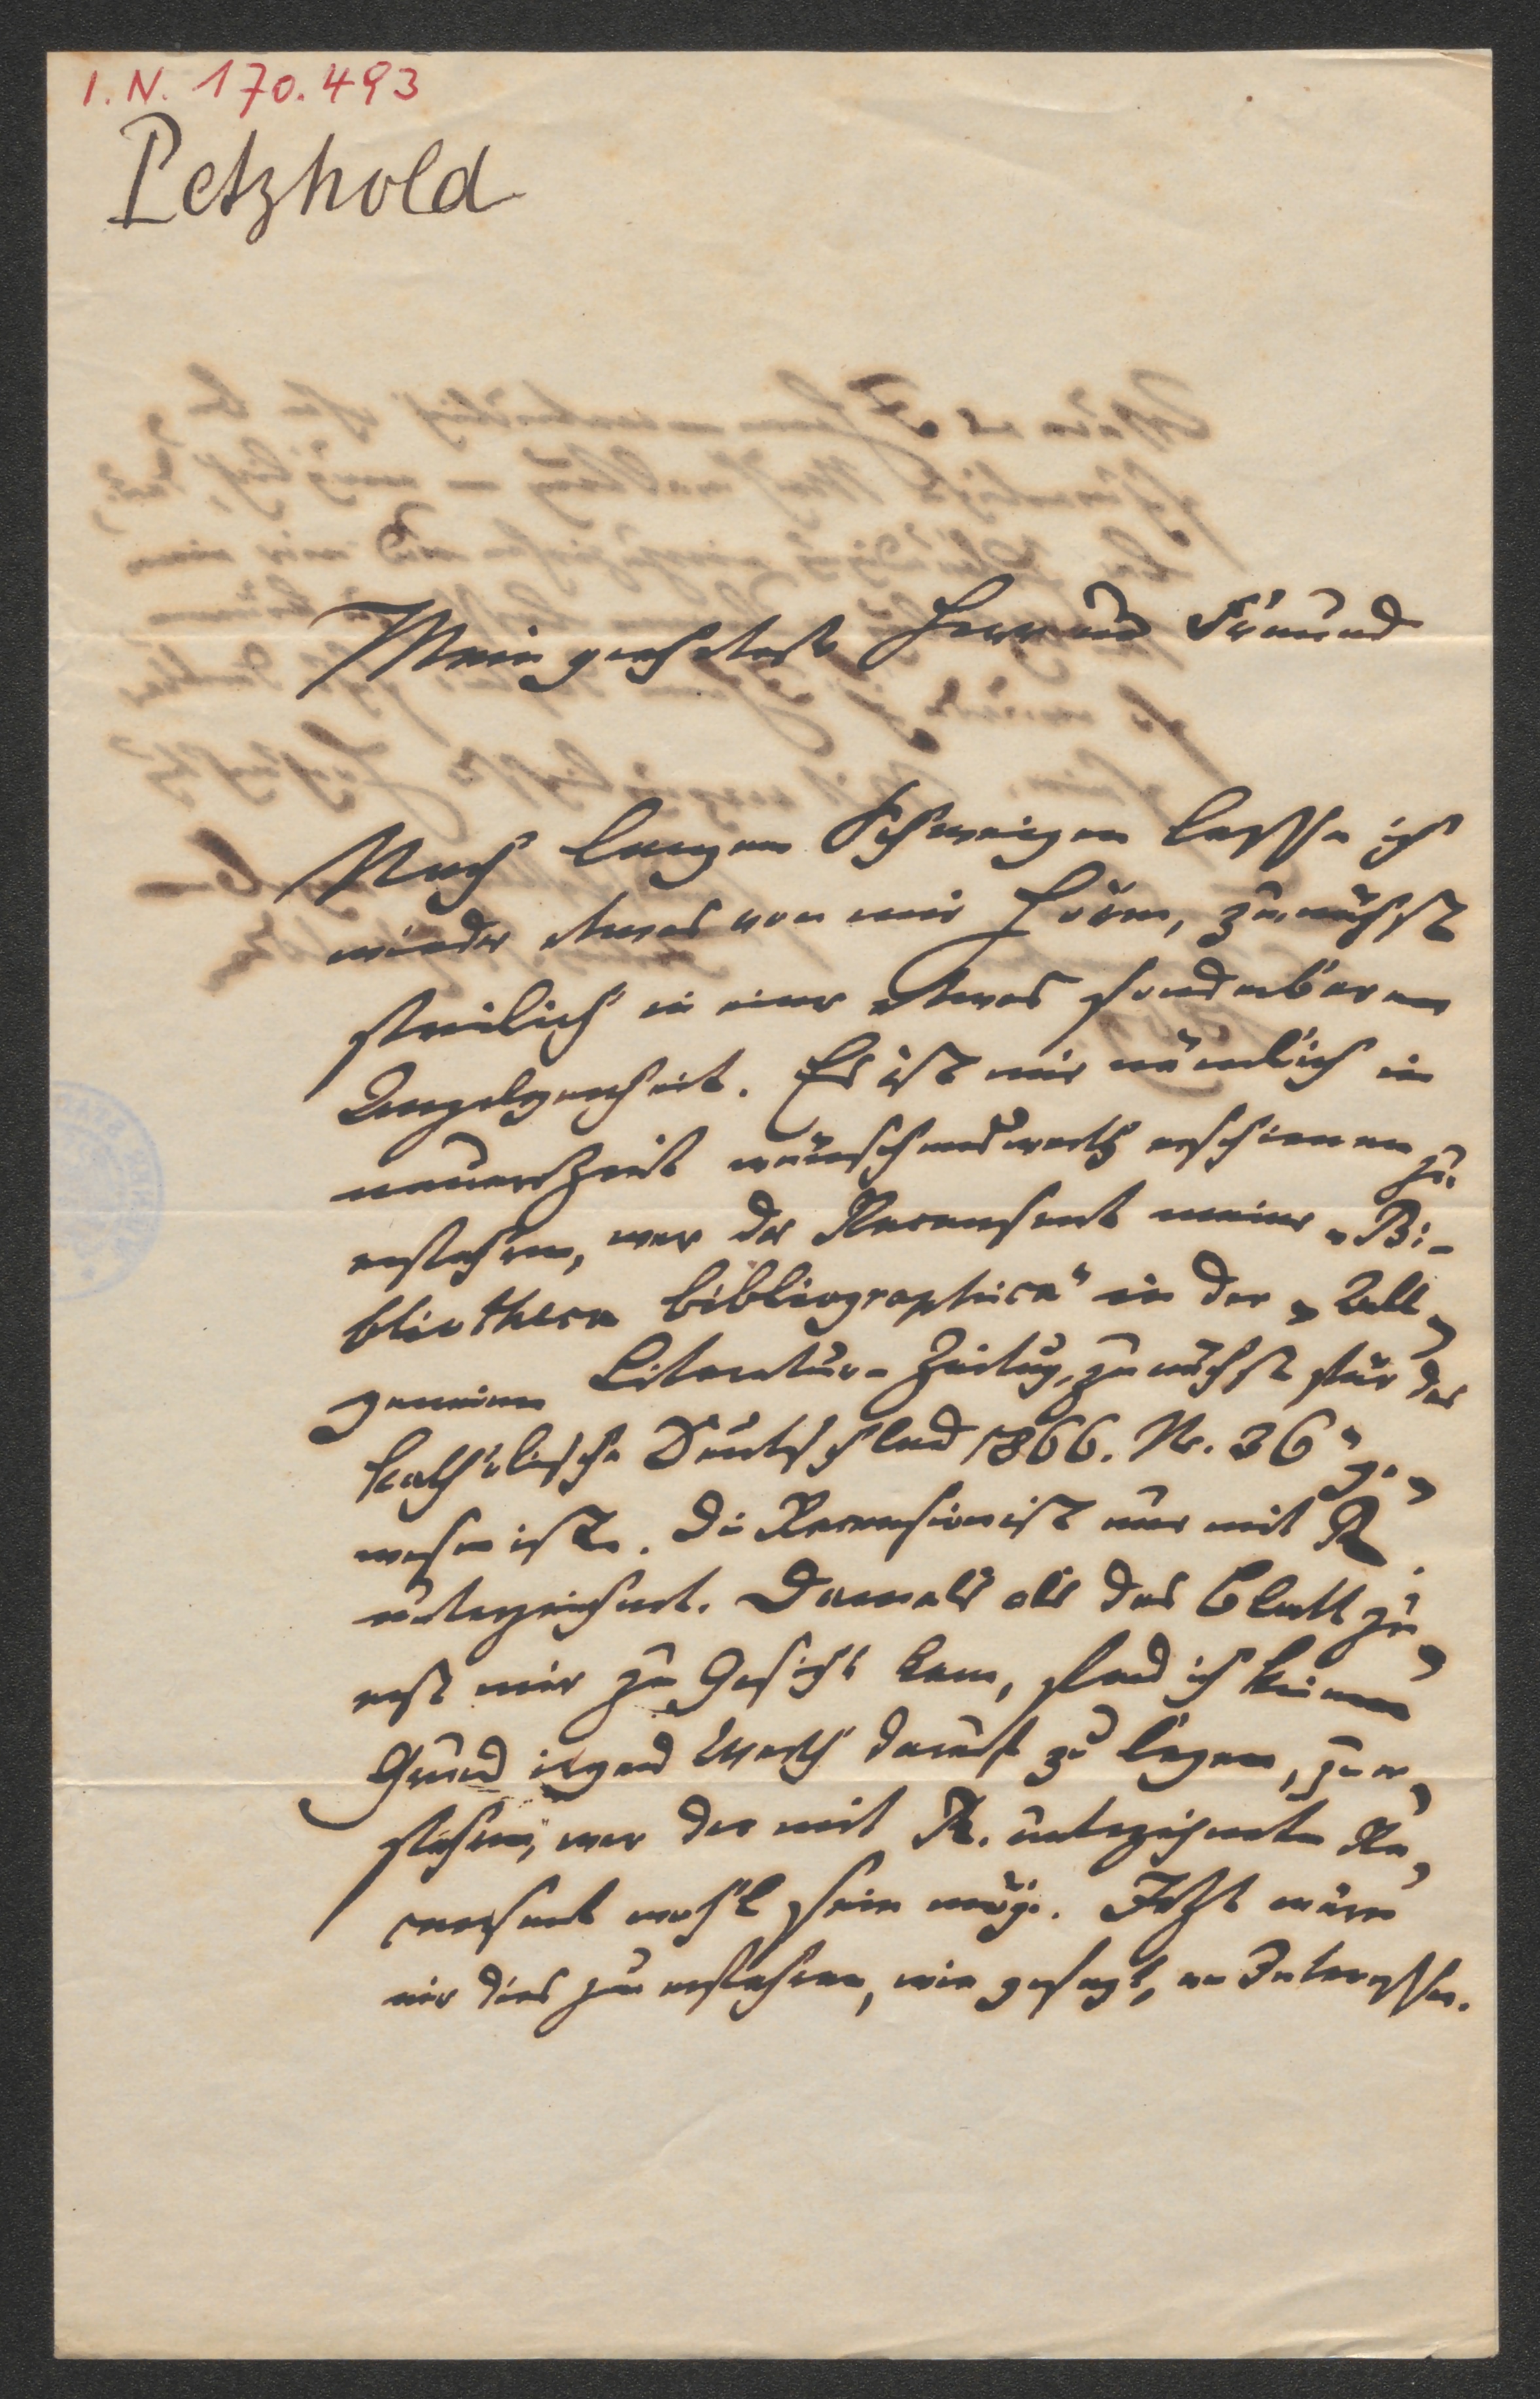 I.N. 170.493
Petzhold
Mein geehrtester Herr und Freund
Nach langem Schweigen lasse ich
wieder etwas von mir hören, zunächst
freilich in einer etwas sonderbaren
Angelegenheit. Es ist mir nämlich in
neuerer Zeit wünschenswerth erschienen zu
erfahren, wer der Recensent meiner „Bi-
bliotheca bibliographica" in der „Allge-
gemeinen Literatur-Zeitung, zunächst für das
katholische Deutschland 1866. Nr. 36" ge-
wesen ist. Die Recension ist nur mit R.
unterzeichnet. Damals als das Blatt zu-
erst mir zu Gesicht kam, fand ich keinen
Grund irgend Werth darauf zu legen, zu er-
fahren, wer der mit R. unterzeichnete Re-
censent wohl sein möge. Jetzt wäre
mir dies zu erfahren, wie gesagt, von Interesse.